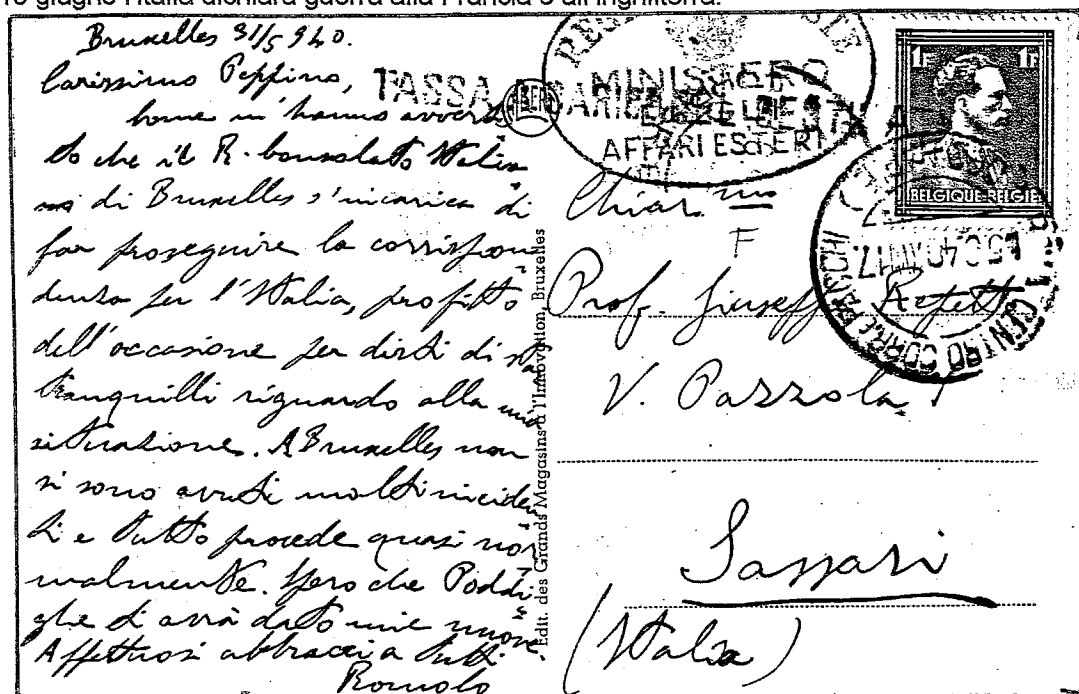 10 giugno l'Italia dichiara guerra alla Francia e all'Inghilterra.
Bruxelles 31/5 940.
Carissimo Peppino,
Come m'hanno avver
to che il R. Consolato Italia
no di Bruxelles s'incarica di
far proseguire la corrispon
denza per l'Italia, profitto
dell'occasione per dirti di star
tranquilli riguardo alla mia
situazione. A Bruxelles non
si sono avuti molti inciden
ti e tutto procede quasi nor
malmente. Spero che Poddi
ghe ti avrà dato mie nuove.
Affettuosi abbracci a tutti
Romolo
Edit. des Grands Magasins à l'Innovation, Bruxelles
TASSA
ALBERT
MINISTERO
AFFARI ESTERI
1F 1F
BELGIQUE-BELGIE
CENTRO CORR.
Chiar.mo
F
Prof. Giuseppe
V. Pazzola, 1
Sassari
(Italia)